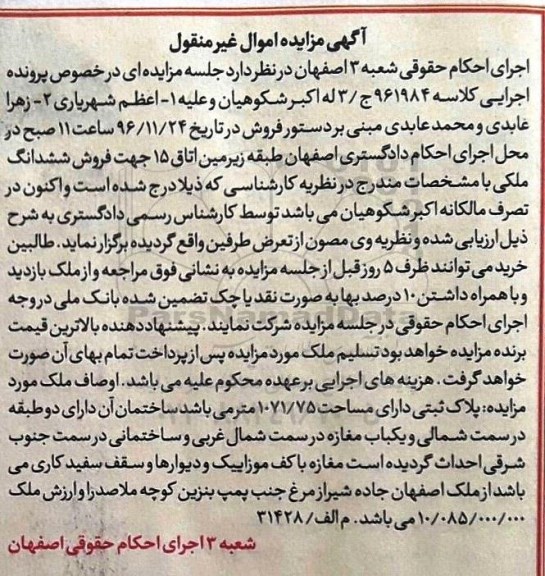 آگهی مزایده اموال غیر منقول
اجرای احکام حقوقی شعبه ۳ اصفهان در نظر دارد جلسه مزایده ای در خصوص پرونده
اجرایی کلاسه ۹۶۱۹۸۴ ج/۳ له اکبر شکوهیان و علیه ۱- اعظم شهریاری ۲- زهرا
عابدی و محمد عابدی مبنی بر دستور فروش در تاریخ ۹۶/۱۱/۲۴ ساعت ۱۱ صبح در
محل اجرای احکام دادگستری اصفهان طبقه زیرمین اتاق ۱۵ جهت فروش ششدانگ
ملکی با مشخصات مندرج در نظریه کارشناسی که ذیلا درج شده است و اکنون در
تصرف مالکانه اکبر شکوهیان می باشد توسط کارشناس رسمی دادگستری به شرح
ذیل ارزیابی شده و نظریه وی مصون از تعرض طرفین واقع گردیده برگزار نماید. طالبین
خرید می توانند ظرف ۵ روز قبل از جلسه مزایده به نشانی فوق مراجعه و از ملک بازدید
و با همراه داشتن ۱۰ درصد بها به صورت نقد یا چک تضمین شده بانک ملی در وجه
اجرای احکام حقوقی در جلسه مزایده شرکت نمایند. پیشنهاد دهنده بالاترین قیمت
برنده مزایده خواهد بود تسلیم ملک مورد مزایده پس از پرداخت تمام بهای آن صورت
خواهد گرفت. هزینه های اجرایی بر عهده محکوم علیه می باشد. اوصاف ملک مورد
مزایده: پلاک ثبتی دارای مساحت ۱۰۷۱/۷۵ متر می باشد ساختمان آن دارای دو طبقه
در سمت شمالی و یکباب مغازه در سمت شمال غربی و ساختمانی در سمت جنوب
شرقی احداث گردیده است مغازه با کف موزاییک و دیوارها و سقف سفید کاری می
باشد از ملک اصفهان جاده شیراز مرغ جنب پمپ بنزین کوچه ملاصدرا و ارزش ملک
۱۰/۰۸۵/۰۰۰/۰۰۰ می باشد. م الف/ ۳۱۴۲۸
شعبه ۳ اجرای احکام حقوقی اصفهان
ParsNamadData